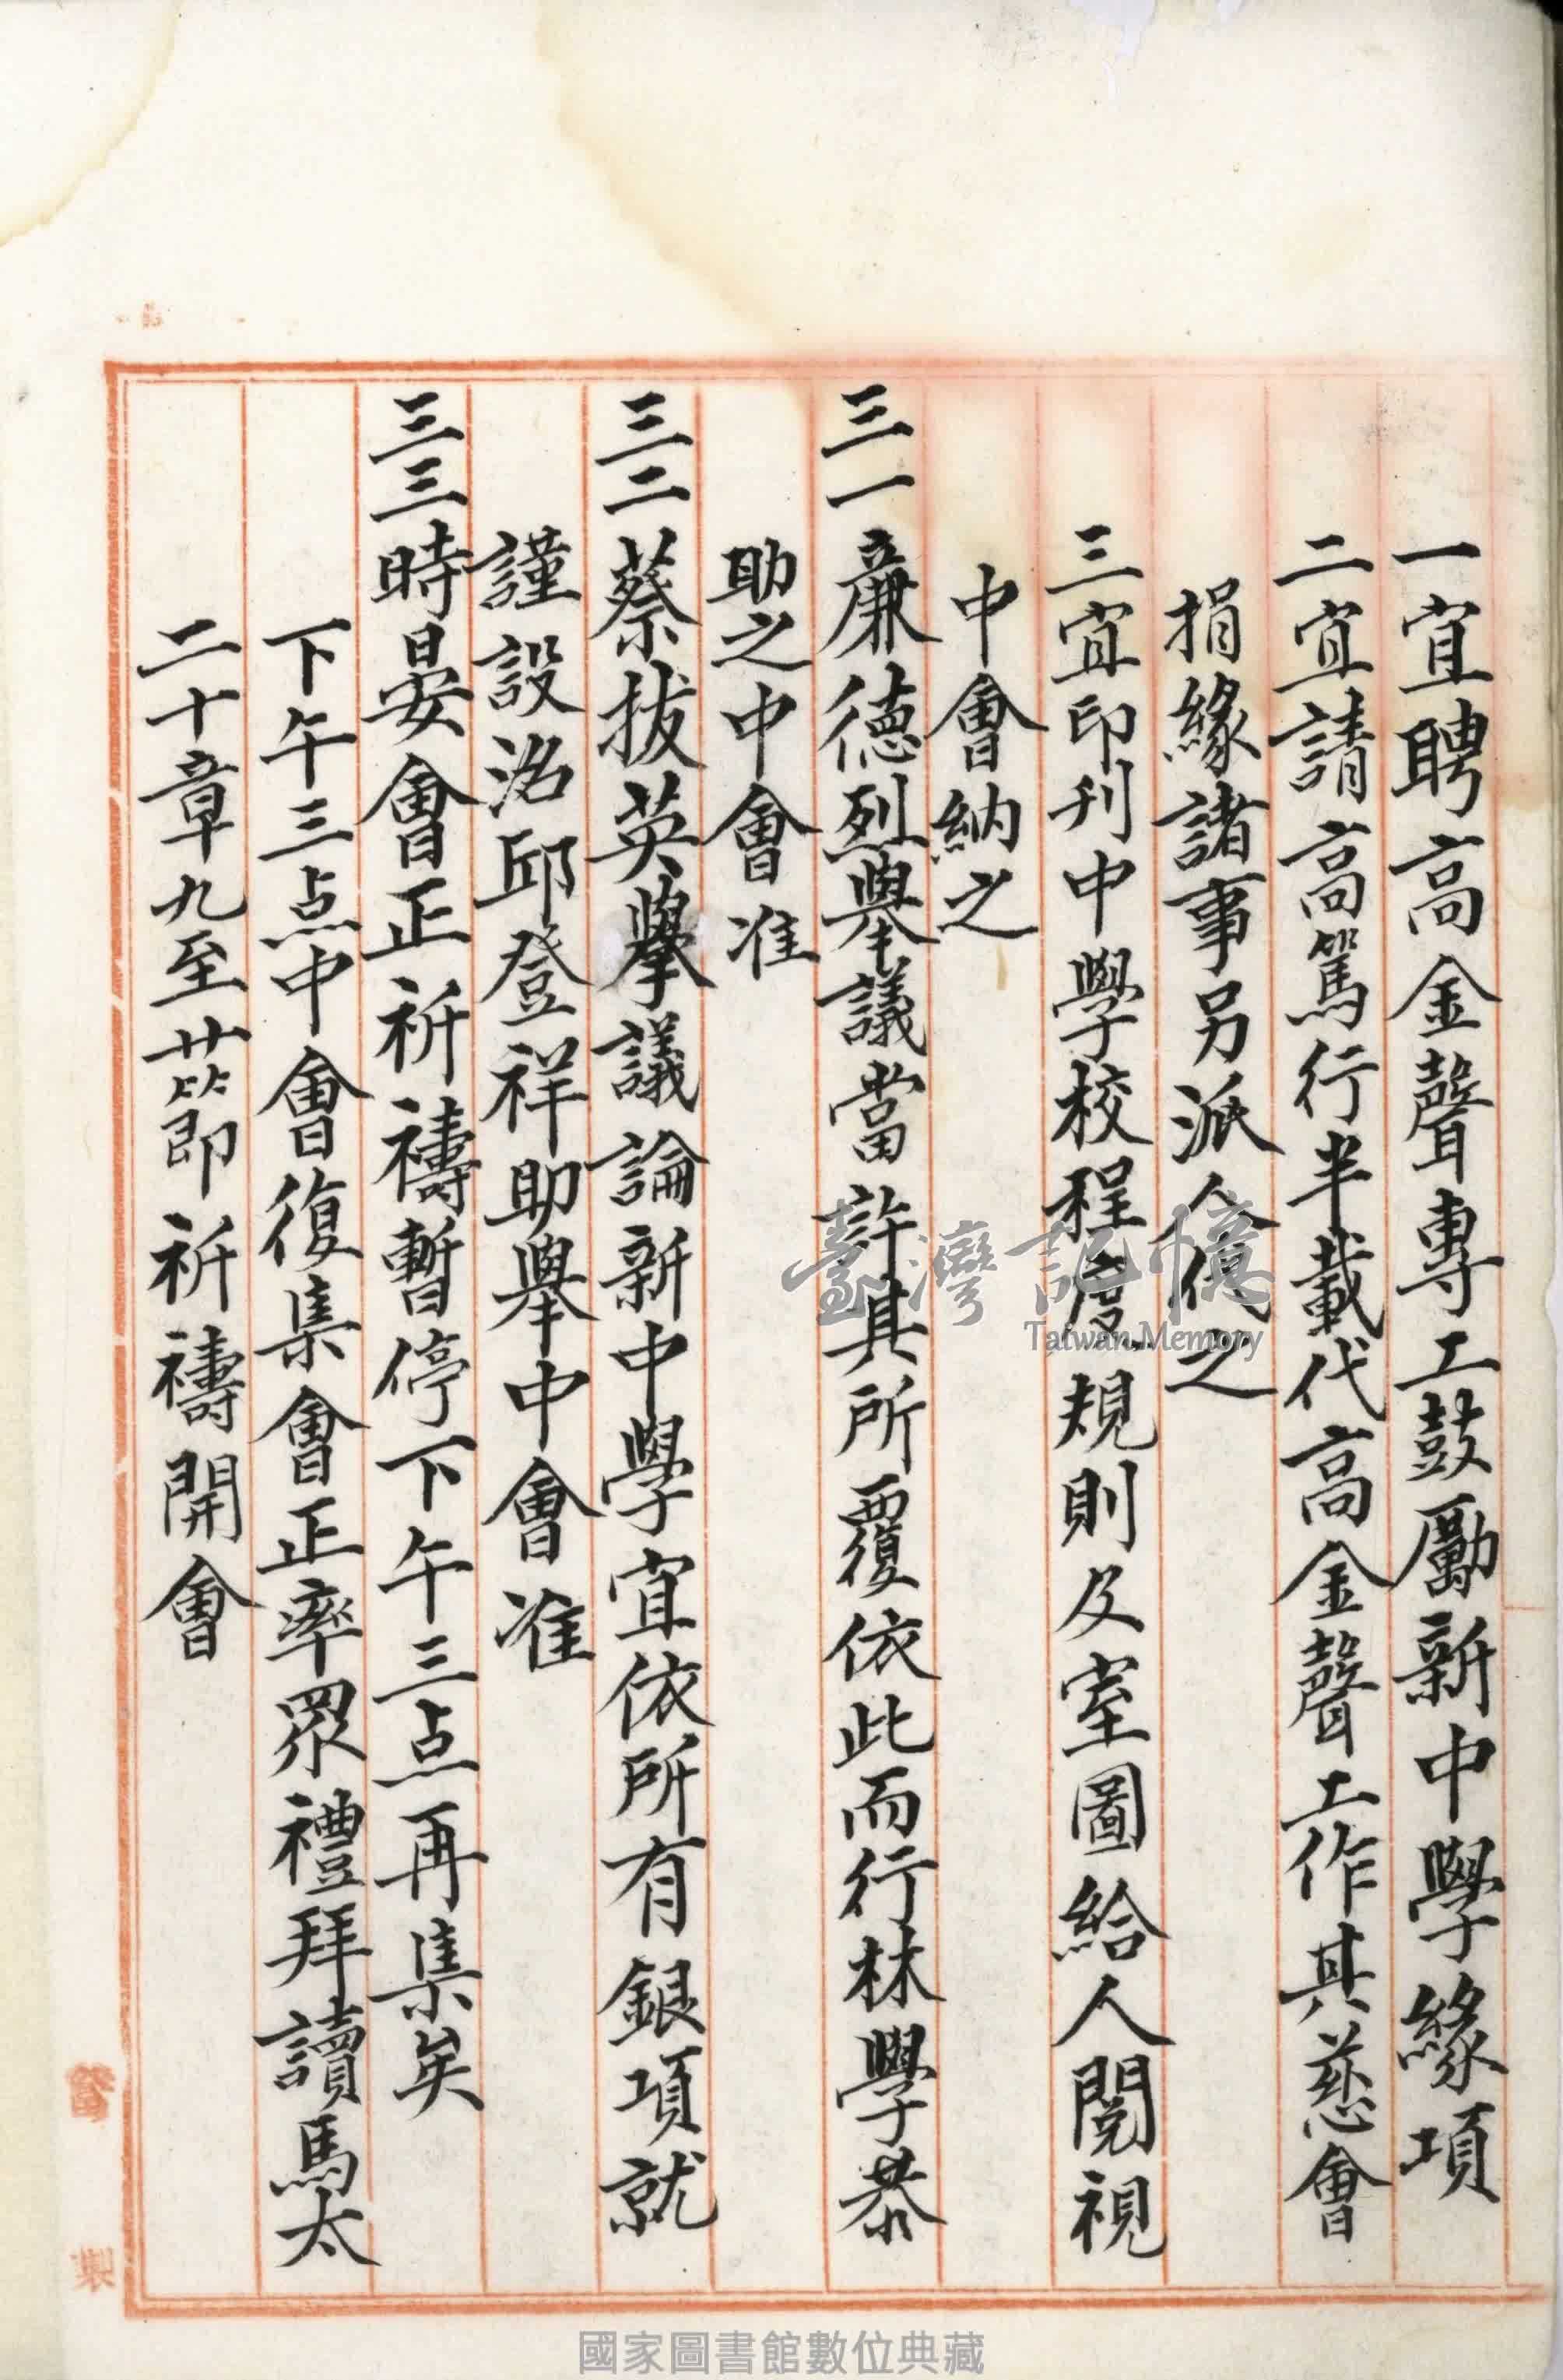 一宜聘高金聲專工鼓勵新中學緣項
二宜請高篤行半載代高金聲工作其慈會
捐緣諸事另派人代之
三宜印刊中學校程度規則及室圖給人閱視
中會納之
三一廉德烈舉議當許其所覆依此而行林學恭
助之中會准
三二蔡拔英擧議論新中學宜依所有銀項就
謹設法邱登祥助舉中會准
三三時晏會正祈禱暫停下午三点再集矣
下午三点中會復集會正率眾禮拜讀馬太
二十章九至廿節祈禱開會
臺灣記憶
Taiwan Memory
國家圖書館數位典藏